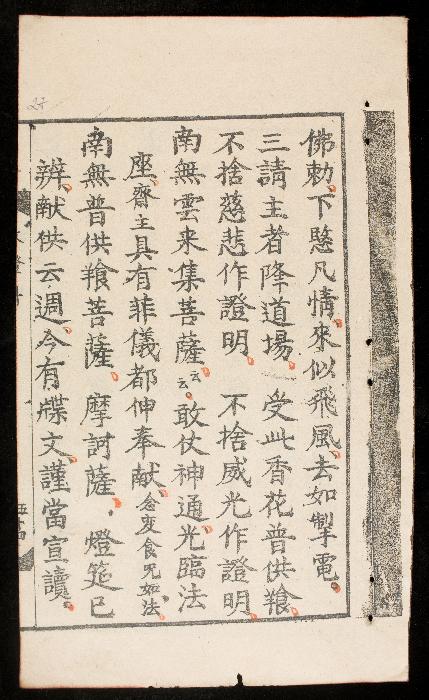 佛勅下愍凡情來似飛風去如掣電
三請主者降道場 受此香花普供飱
不捨慈悲作證明 不捨威光作證明
南無雲来集菩薩云云敢仗神通光臨法
座齋主具有菲儀都伸奉献念变食咒如法
南無普供飱菩薩 摩訶薩 燈筵已
辨献供云週今有牒文謹當宣讀
27